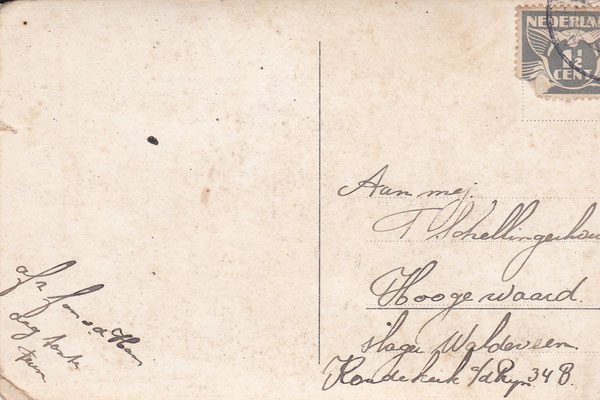 NEDERLAN
1½
CENT
Aan mej.
T Schellingerhou
Hooge waard.
slager Waldeveen
Koudekerk a/d Ryn 348
afz Jan v d
dag